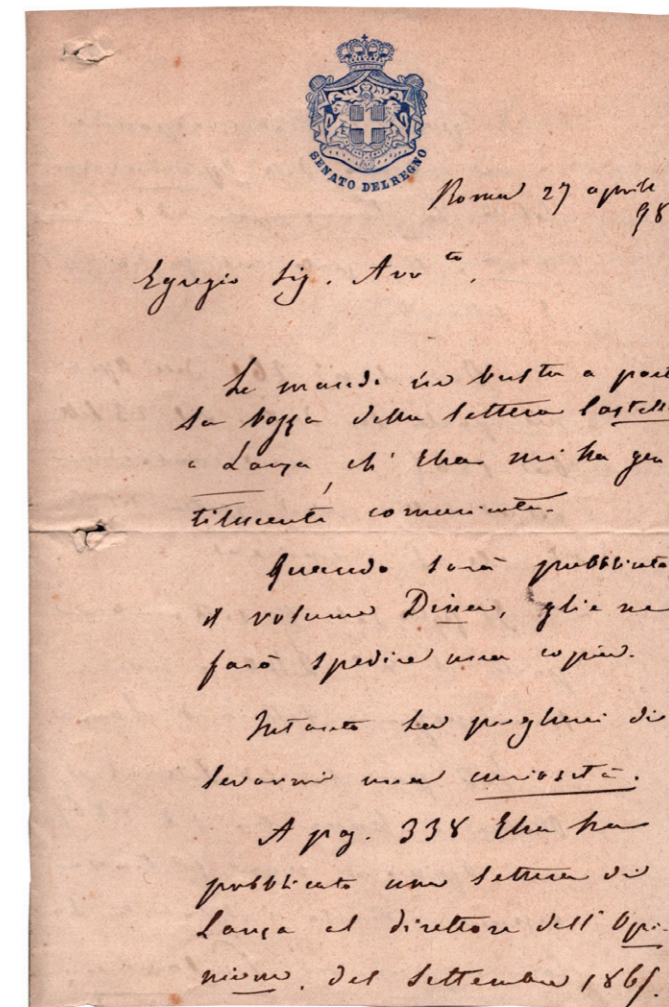 SENATO DEL REGNO
Roma 27 aprile
98
Egregio Sig. Avv.to,
Le mando in busta a parte
la bozza della lettera Castelli
a Lanza, ch'Ella mi ha gen
tilmente comunicata.
Quando sarà pubblicato
il volume Dina, glie ne
farò spedire una copia.
Intanto La pregherei di
levarmi una curiosità.
A pag. 338 Ella ha
pubblicato una lettera di
Lanza al direttore dell'Opi-
nione, del settembre 1865.